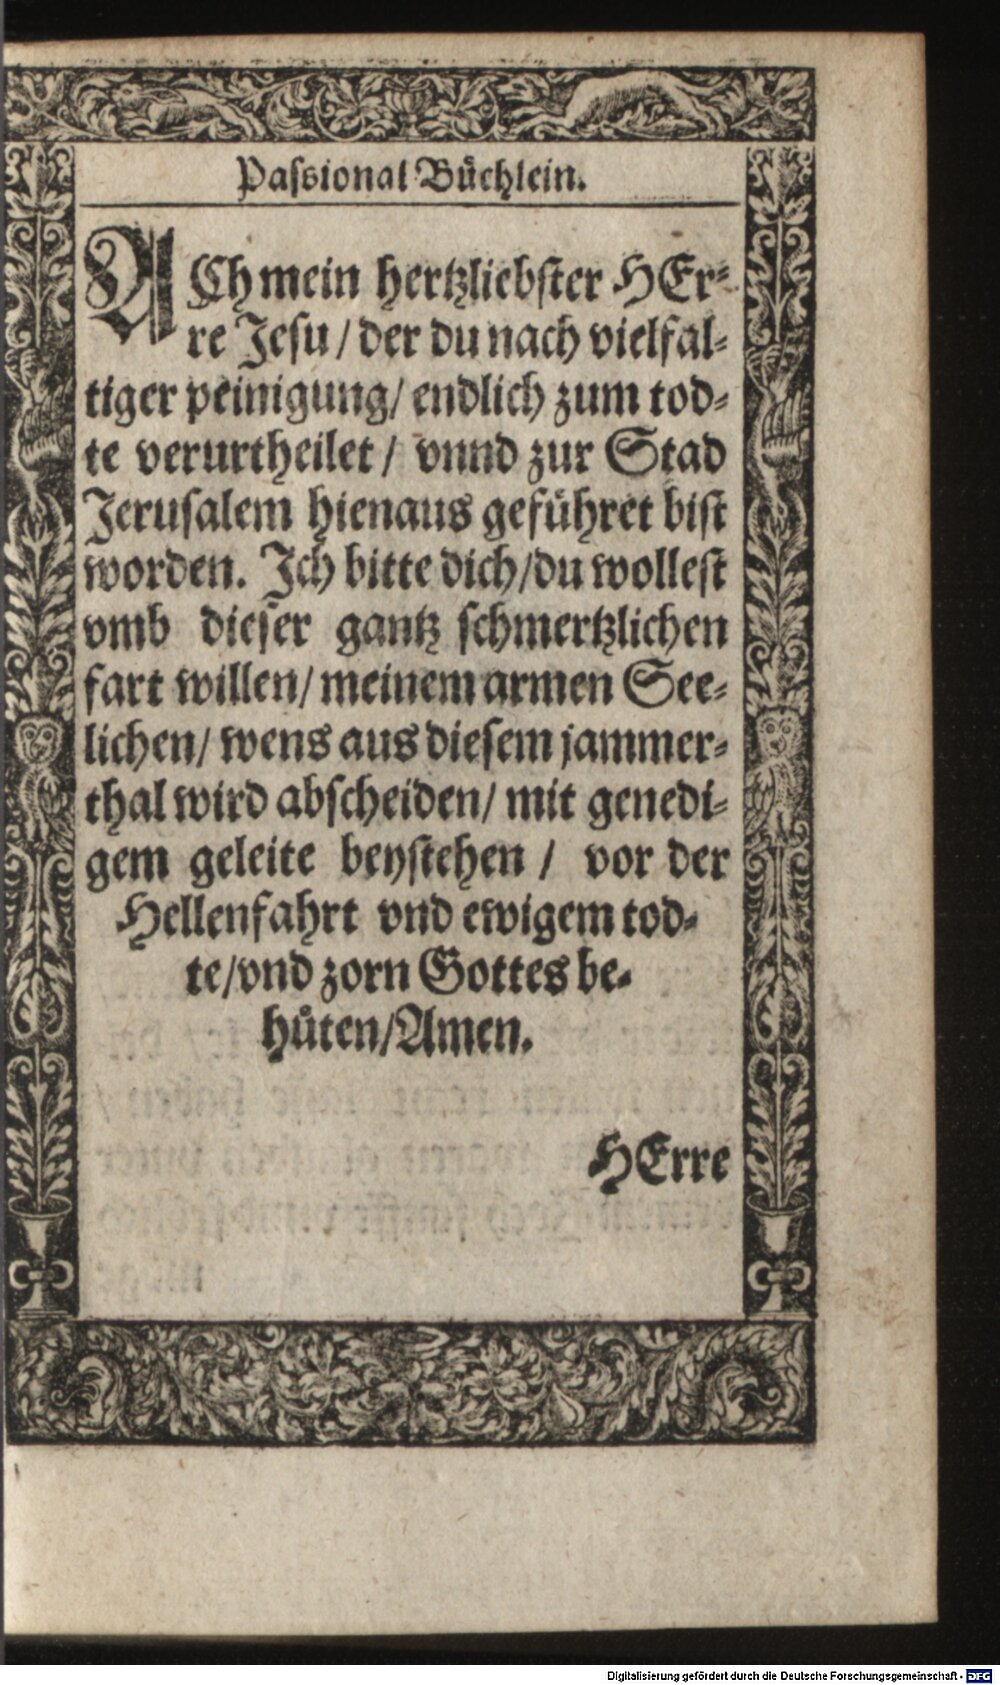 Passional Buͤchlein.
ACh mein hertzliebster HEr⸗
re Jesu / der du nach vielfal⸗
tiger peinigung / endlich zum tod⸗
te verurtheilet / vnnd zur Stad
Jerusalem hienaus gefuͤhret bist
worden. Ich bitte dich / du wollest
vmb dieser gantz schmertzlichen
fart willen / meinem armen See⸗
lichen / wens aus diesem jammer⸗
thal wird abscheiden / mit genedi⸗
gem geleite beystehen / vor der
Hellenfahrt vnd ewigem tod⸗
te / vnd zorn Gottes be⸗
huͤten / Amen.
HErre
Digitalisierung gefördert durch die Deutsche Forschungsgemeinschaft - DFG